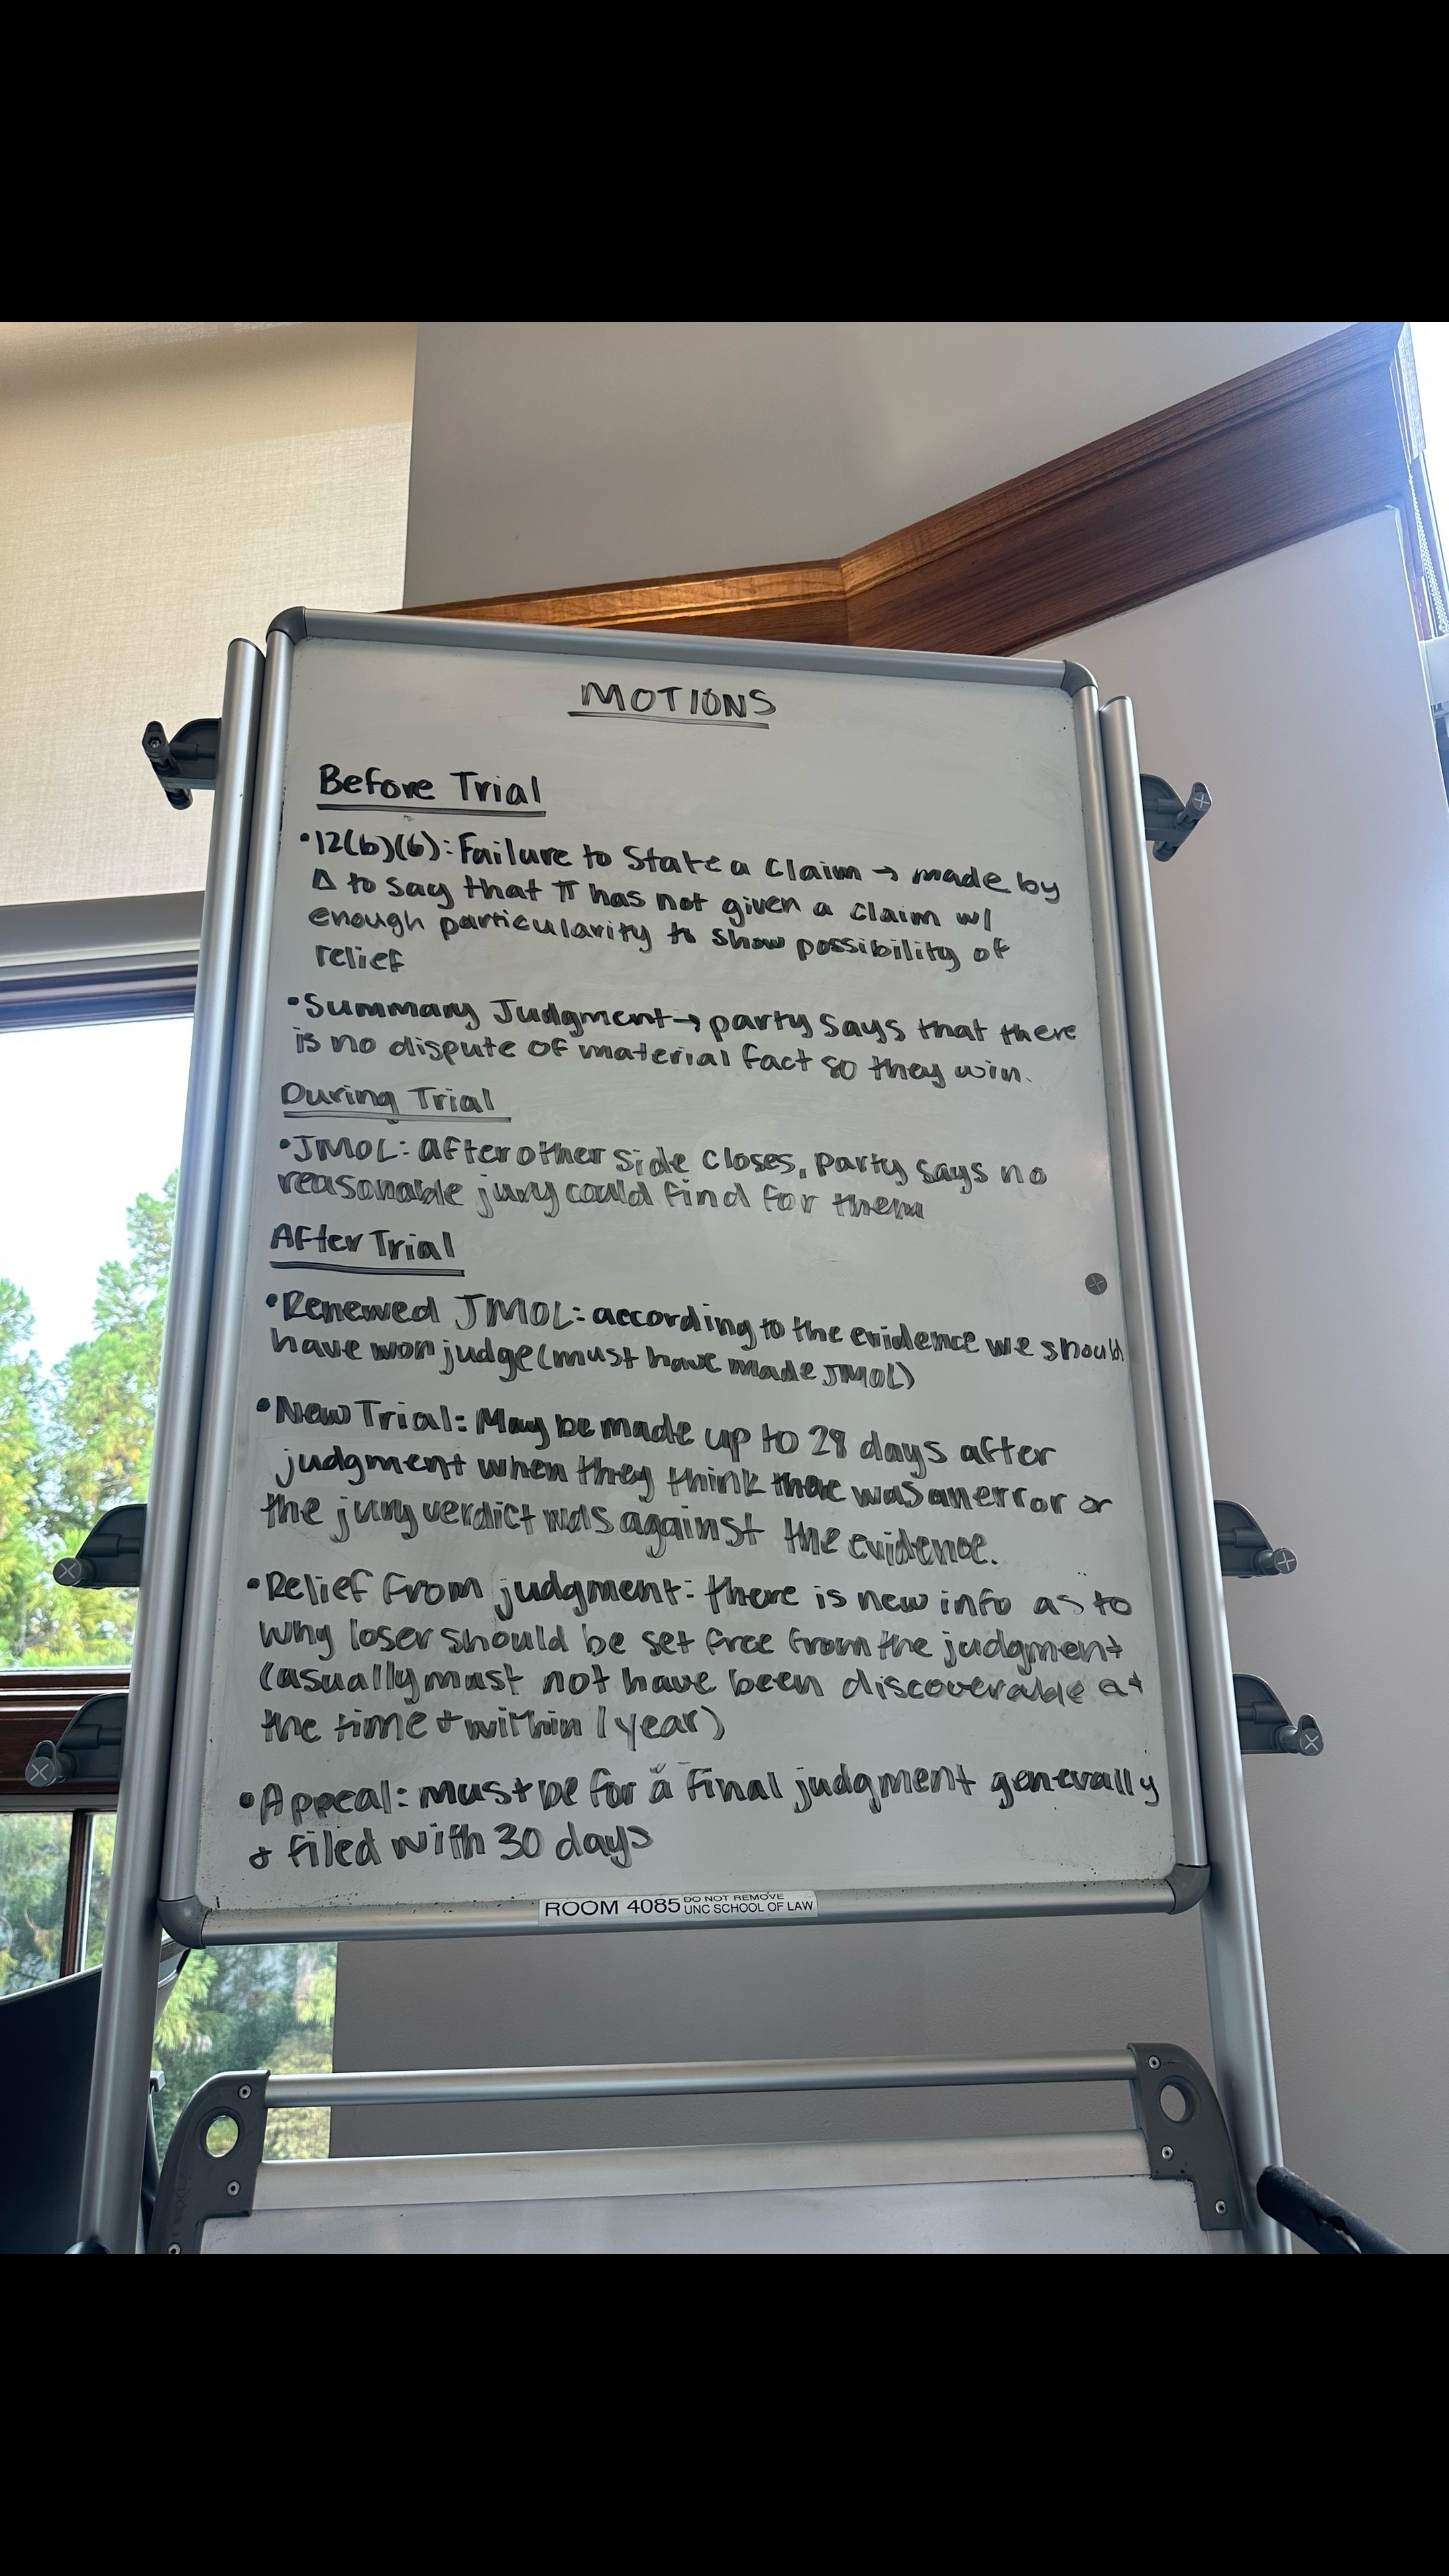 MOTIONS
Before Trial
•12(b)(6): Failure to State a Claim → made by
Δ to say that π has not given a claim w/
enough particularity to show possibility of
relief
•Summary Judgment → party says that there
is no dispute of material fact so they win.
During Trial
•JMOL: after other side closes, party says no
reasonable jury could find for them
After Trial
•Renewed JMOL: according to the evidence we should
have won judge (must have made JMOL)
•New Trial: May be made up to 28 days after
judgment when they think there was an error or
the jury verdict was against the evidence.
•Relief from judgment: there is new info as to
why loser should be set free from the judgment
(usually must not have been discoverable at
the time + within 1 year)
•Appeal: must be for a final judgment generally
& filed with 30 days
ROOM 4085 DO NOT REMOVE
UNC SCHOOL OF LAW